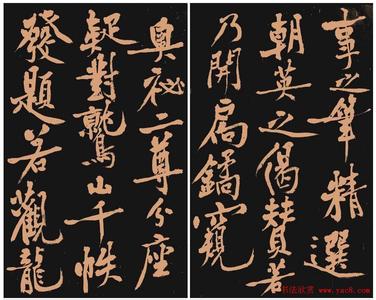 事之筆精選
朝英之偈賛若
乃開扃鐍窺
奥祕二尊分座
疑對鷲山千帙
發題若觀龍
书法欣赏 www.yac8.com